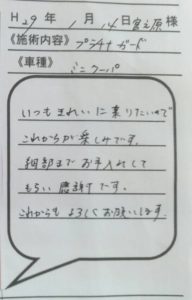 H29年1月14日宮原様
《施術内容》プラチナガード
《車種》
ミニクーパ
いつもきれいに乗りたいので
これからが楽しみです。
細部までお手入れして
もらい感謝です。
これからもよろしくお願いします。